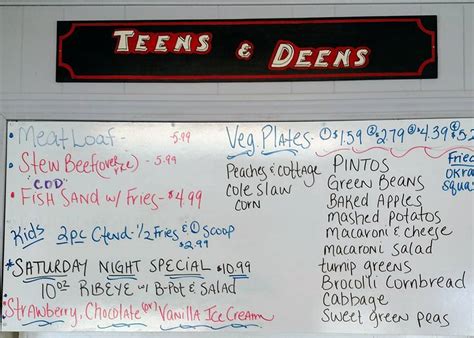 TEENS & DEENS
• Meat Loaf - 5.99
• Stew Beef (over rice) - 5.99
"COD"
• FISH SAND w/ FRIES - $4.99
Kids 2pc Ctend - 1/2 Fries & ① Scoop
$2.99
*SATURDAY NIGHT SPECIAL $10.99
10oz RIBEYE w/ B-Pot & Salad
Strawberry, Chocolate (or) Vanilla Ice Cream
Veg. Plates - ①$1.59 ②$2.79 ③$4.39 ④$5.2
Peaches & Cottage
Cole Slaw
Corn
PINTOS
Green Beans
Baked Apples
mashed potatos
macaroni & cheese
macaroni salad
turnip greens
Brocolli Cornbread
Cabbage
Sweet green peas
Fried
OKra
Squas